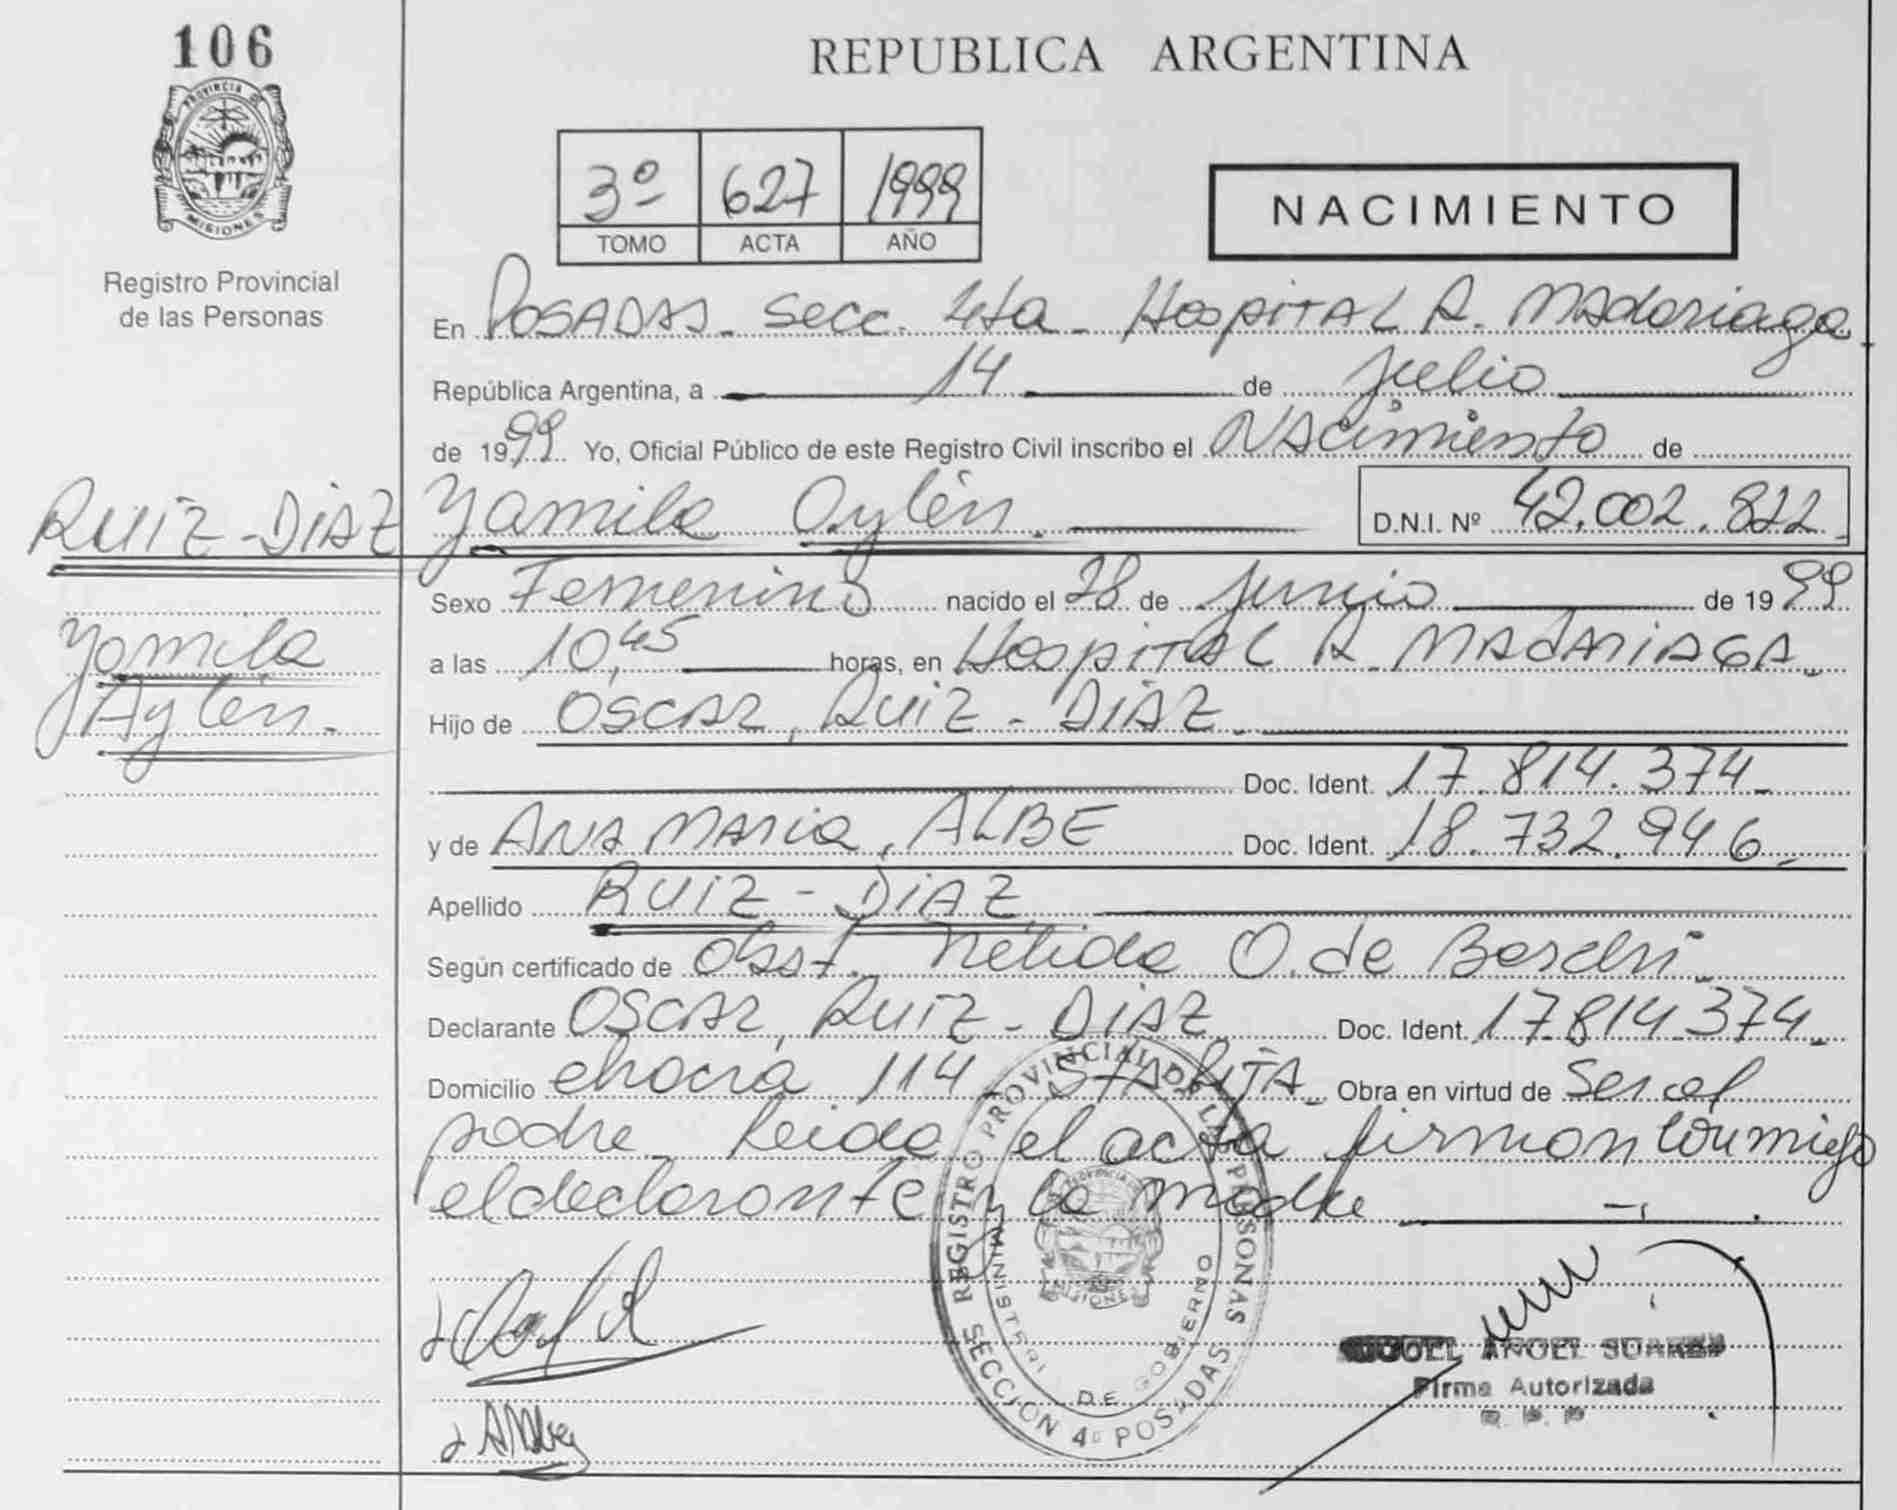 106
PROVINCIA DE
MISIONES
Registro Provincial
de las Personas
REPUBLICA ARGENTINA
3º 627 1999
TOMO ACTA AÑO
NACIMIENTO
En Posadas - Secc. 4ta - Hospital R. Madariaga
República Argentina, a 14 de Julio
de 1999. Yo, Oficial Público de este Registro Civil inscribo el Nacimiento de
RUIZ-DIAZ
Yamila Aylén.
Yamila Aylén. D.N.I. Nº 42.002.822
Sexo Femenino nacido el 28 de Junio de 1999
a las 10,45 horas, en Hospital R. MADARIAGA
Hijo de OSCAR, RUIZ - DIAZ
Doc. Ident. 17.814.374
y de ANA MARIA, ALBE Doc. Ident. 18.732.946
Apellido RUIZ - DIAZ
Según certificado de obst. Nélida O. de
Declarante OSCAR, RUIZ - DIAZ Doc. Ident. 17.814.374
Domicilio chacra 114 - STA RITA Obra en virtud de Ser el
padre. Leida el acta firman conmigo
el declarante y la madre
REGISTRO PROVINCIAL DE LAS PERSONAS
SECCION 4º POSADAS
DE GOBIERNO
ANGEL SUAREZ
Firma Autorizada